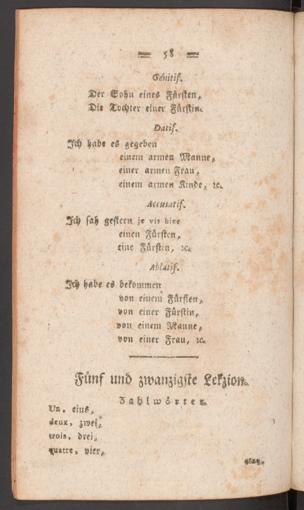 58
Génitif.
Der Sohn eines Fürsten,
Die Tochter einer Fürstin.
Datif.
Ich habe es gegeben
einem armen Manne,
einer armen Frau,
einem armen Kinde, ꝛc.
Accusatif.
Ich sah gestern je vis hier
einen Fürsten,
eine Fürstin, ꝛc.
Ablatif.
Ich habe es bekommen
von einem Fürsten,
von einer Fürstin,
von einem Manne,
von einer Frau, ꝛc.
Fünf und zwanzigste Lekzion.
Zahlwörter.
Un, eins,
deux, zwei,
trois, drei,
quatre, vier,